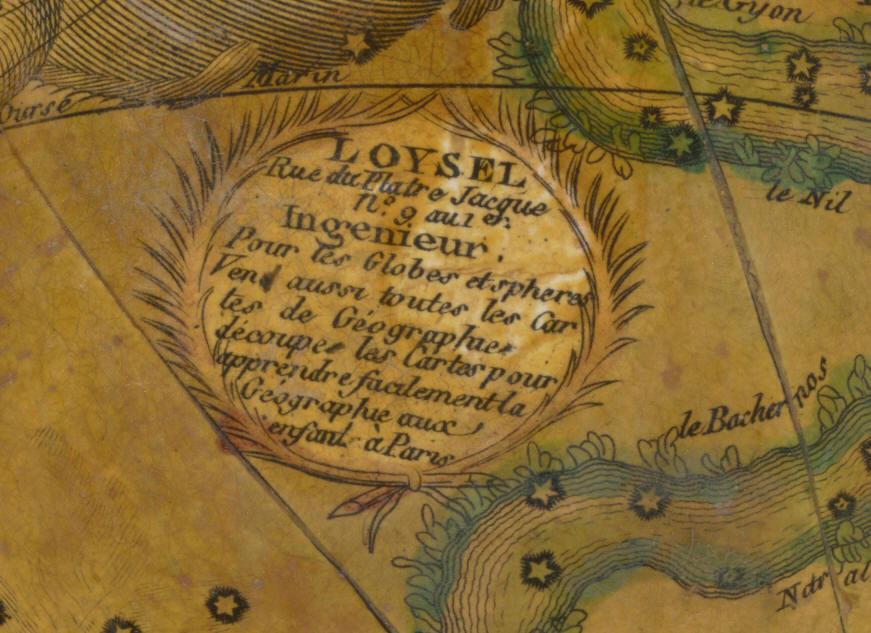 le Gyon
Marin
Ourse
LOYSEL
Rue du Platre Jacque
n.º 9 au 1 er.
Ingenieur.
Pour les Globes et spheres
Vend aussi toutes les Car
tes de Géographie
découpe les Cartes pour
apprendre facilement la
Géographie aux
enfant à Paris
le Nil
le Bocher nos